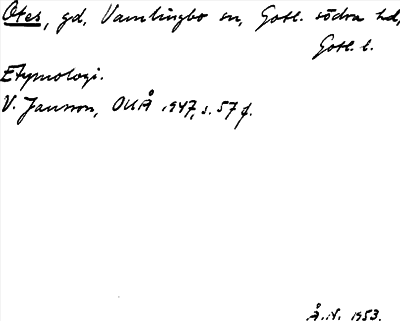 Otes, gd, Vamlingbo sn, Gotl. södra hd,
Gotl. l.
Etymologi.
V. Jansson, OUÅ 1947, s. 57 f.
Å.N. 1953.